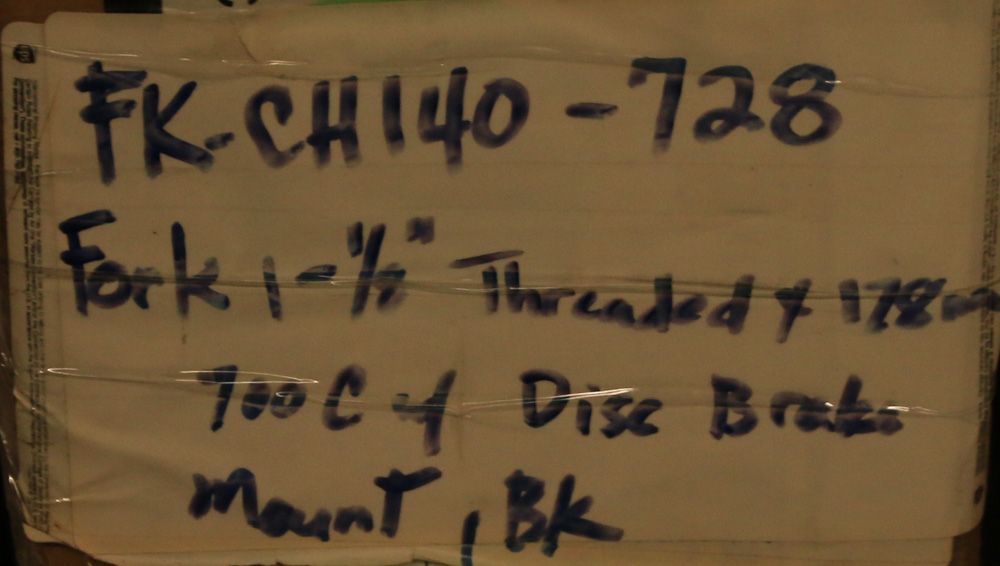 FK-CH140-728
Fork 1-1/8" Threaded x 178m
700C w/ Disc Brake
Mount, BK